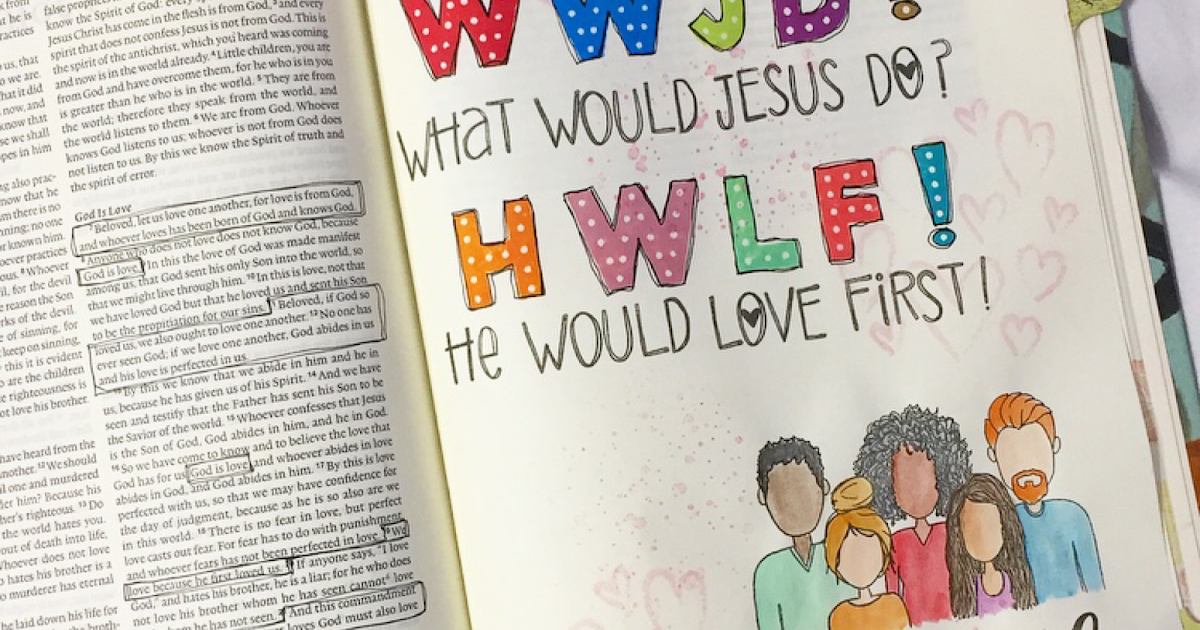 actices
us, that
o we are.
hat it did
now, and
know that
se we shall
opes in him
ng also prac-
now that he
m there is no
nning; no one
r known him.
oever practices
ous. 8 Whoever
il, for the devil
e reason the Son
rks of the devil.
e of sinning, for
keep on sinning,
this it is evident
o are the children
e righteousness is
ot love his brother.
have heard from the
nother. 12 We should
il one and murdered
er him? Because his
her's righteous. 13 Do
the world hates you.
out of death into life,
Whoever does not love
o hates his brother is a
o murderer has eternal
he laid down his life for
know the Spirit of God: every
Jesus Christ has come in the flesh is from God, 3 and every
spirit that does not confess Jesus is not from God. This is
the spirit of the antichrist, which you heard was coming
and now is in the world already. 4 Little children, you are
from God and have overcome them, for he who is in you
is greater than he who is in the world. 5 They are from
the world; therefore they speak from the world, and
the world listens to them. 6 We are from God. Whoever
knows God listens to us; whoever is not from God does
not listen to us. By this we know the Spirit of truth and
the spirit of error.
God Is Love
7 Beloved, let us love one another, for love is from God,
and whoever loves has been born of God and knows God.
8 Anyone who does not love does not know God, because
God is love. 9 In this the love of God was made manifest
among us, that God sent his only Son into the world, so
that we might live through him. 10 In this is love, not that
we have loved God but that he loved us and sent his Son
to be the propitiation for our sins. 11 Beloved, if God so
loved us, we also ought to love one another. 12 No one has
ever seen God; if we love one another, God abides in us
and his love is perfected in us.
13 By this we know that we abide in him and he in
us, because he has given us of his Spirit. 14 And we have
seen and testify that the Father has sent his Son to be
the Savior of the world. 15 Whoever confesses that Jesus
is the Son of God, God abides in him, and he in God.
16 So we have come to know and to believe the love that
God has for us. God is love, and whoever abides in love
abides in God, and God abides in him. 17 By this is love
perfected with us, so that we may have confidence for
the day of judgment, because as he is so also are we
in this world. 18 There is no fear in love, but perfect
love casts out fear. For fear has to do with punishment,
and whoever fears has not been perfected in love. 19 We
love because he first loved us. 20 If anyone says, "I love
God," and hates his brother, he is a liar; for he who does
not love his brother whom he has seen cannot love
whom he has not seen. 21 And this commandment
loves God must also love
WWJD?
WHAT WOULD JESUS DO?
HWLF!
HE WOULD LOVE FIRST!